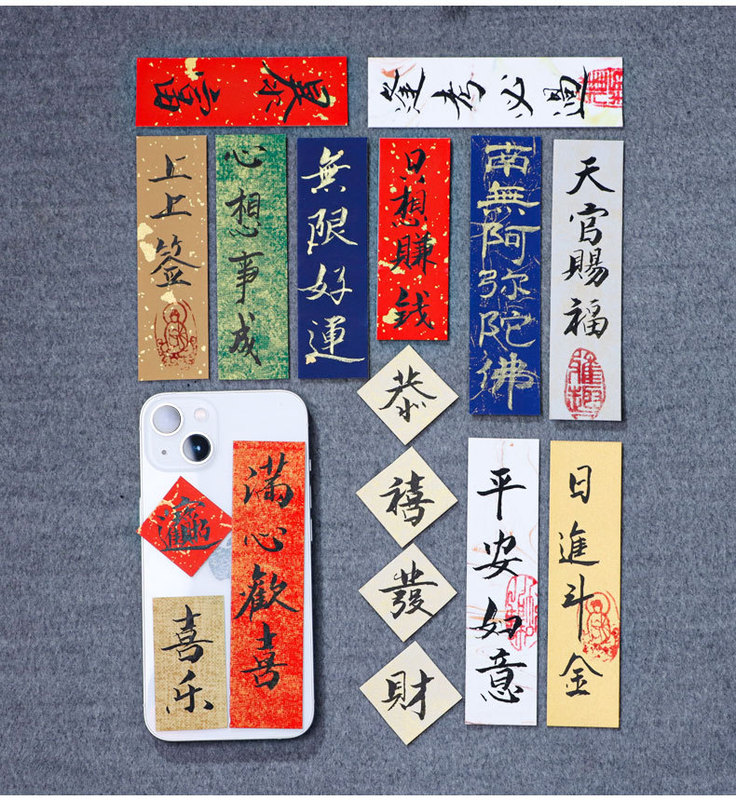 暴富
逢考必過
上上签
心想事成
無限好運
只想賺钱
南無阿弥陀佛
天官賜福
恭
禧
發
財
满心歡喜
喜乐
平安如意
日進斗金